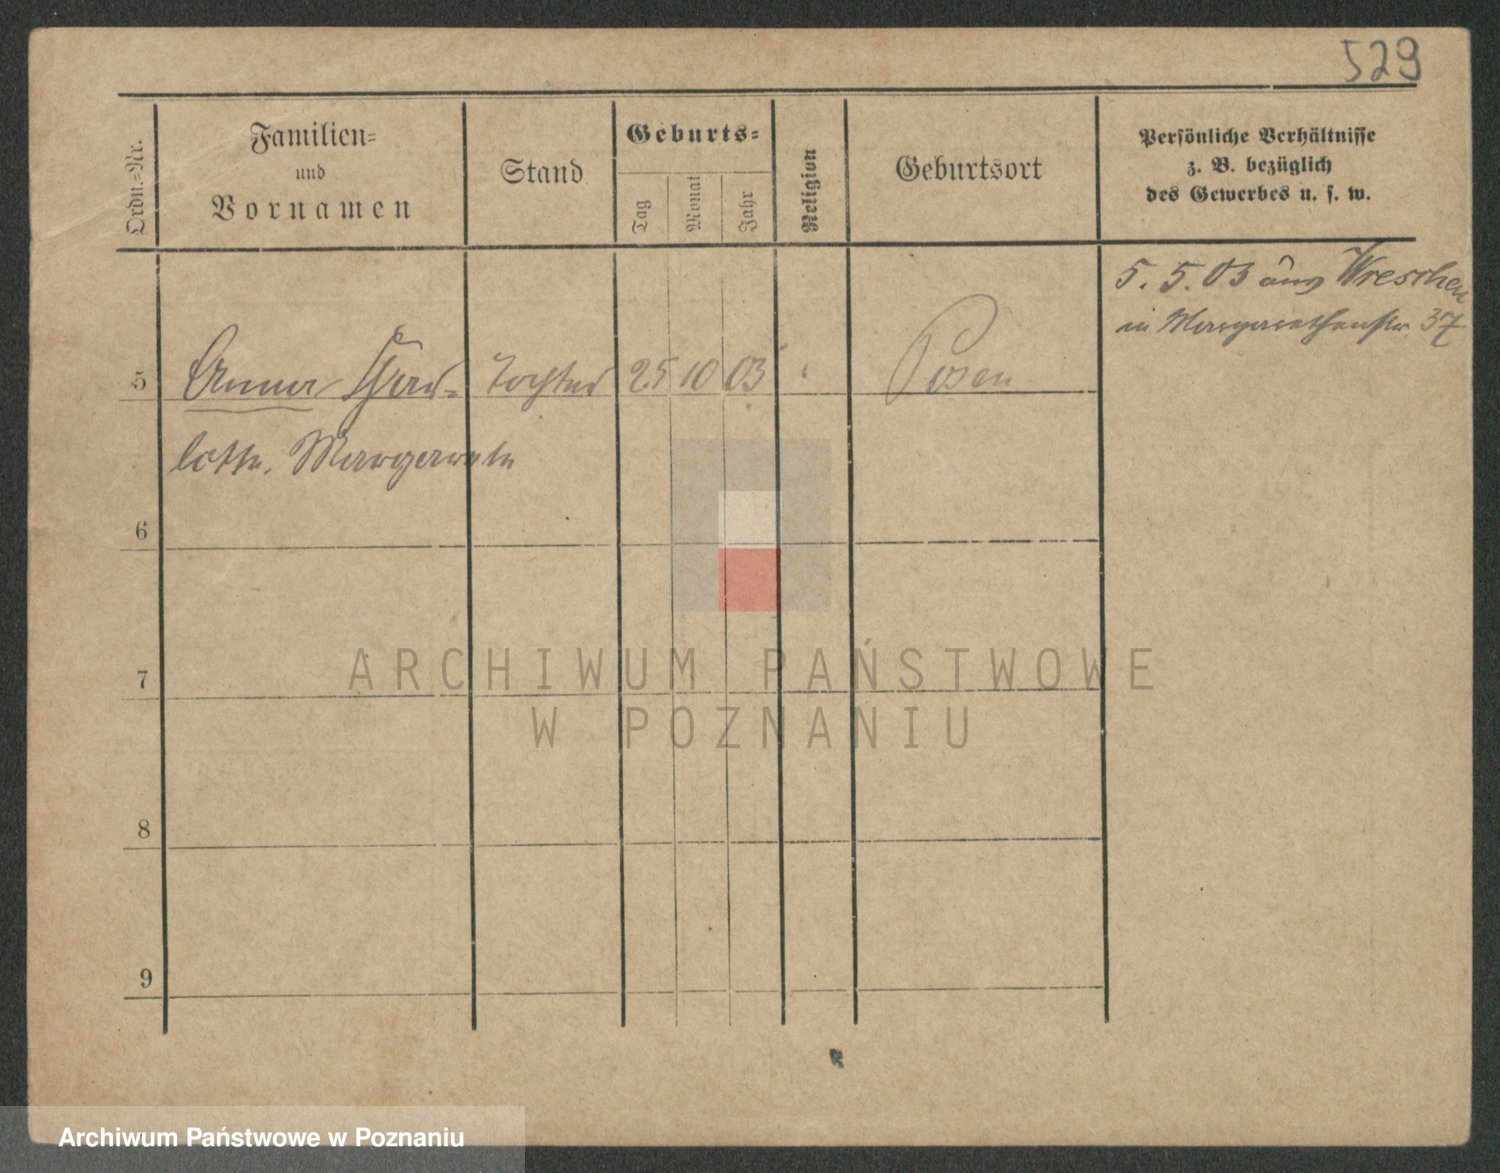 529
Ordn.-Nr.
Familien-
und
Vornamen
Stand
Geburts-
Tag
Monat
Jahr
Religion
Geburtsort
Persönliche Verhältnisse
z. B. bezüglich
des Gewerbes u. s. w.
5. 5. 03 aus Wreschen
in Margarethenstr. 37
5 Anna Char- Tochter 25 10 03 Posen
lotte, Margarete
6
7
8
9
ARCHIWUM PAŃSTWOWE
W POZNANIU
Archiwum Państwowe w Poznaniu